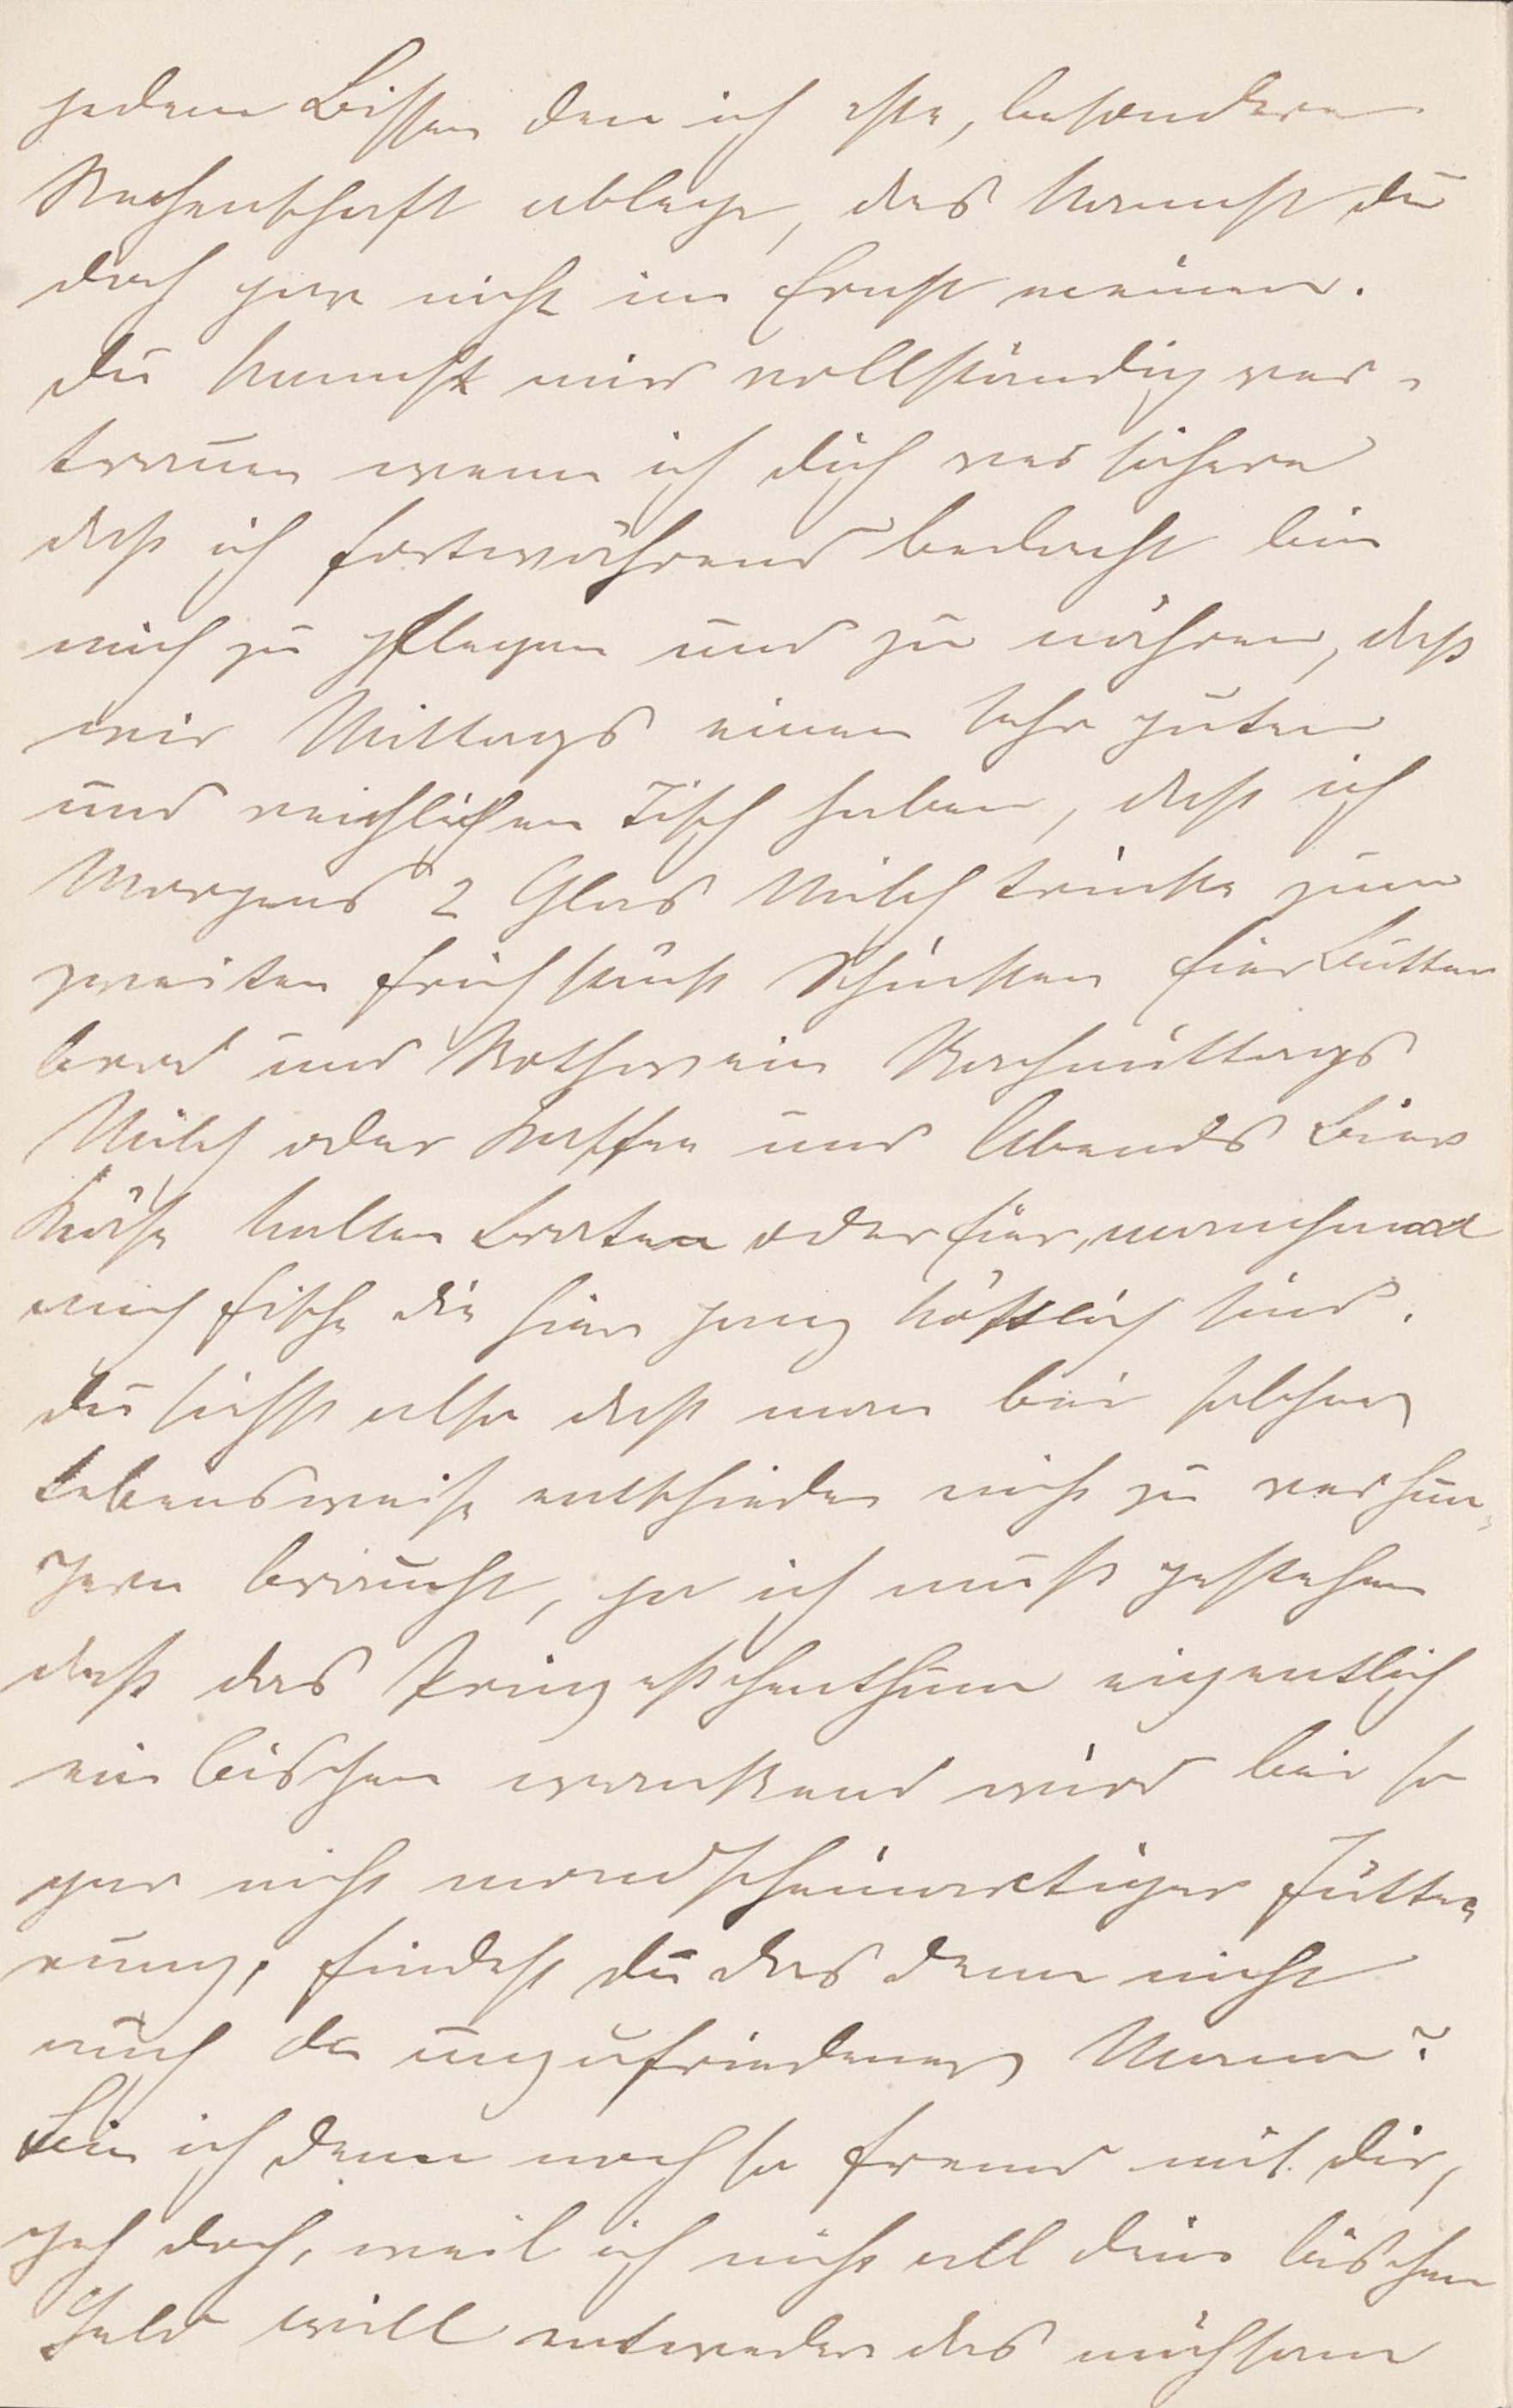 jedem Bissen den ich esse, besondere
Rechenschaft ablege, das kannst du
doch gar nicht im Ernst meinen.
du kannst mir vollständig ver-
trauen wenn ich dich versichere
daß ich fortwährend bedacht bin
mich zu pflegen und zu nähren, daß
wir Mittags einen sehr guten
und reichlichen Tisch haben, daß ich
Morgens 2 Glas Milch trinke zum
zweiten Frühstück Schinken Eier Butter
brod und Rothwein Nachmittags
Milch oder Kaffee und Abends Bier
Käse kalten Braten oder Eier, manchmal
auch Fische die hier ganz köstlich sind.
du siehst also daß man bei solcher
Lebensweise entschieden nicht zu verhun-
gern braucht, ja ich muß gestehen
daß das Prinzeßchenthum eigentlich
ein bischen wankend wird bei so
gar nicht mondscheinartiger Fütte-
rung; findest du das denn nicht
auch du unzufriedener Mann?
Bin ich denn noch so fremd mit dir,
geh doch, weil ich nicht all dein bischen
Geld will entweder das mühsam